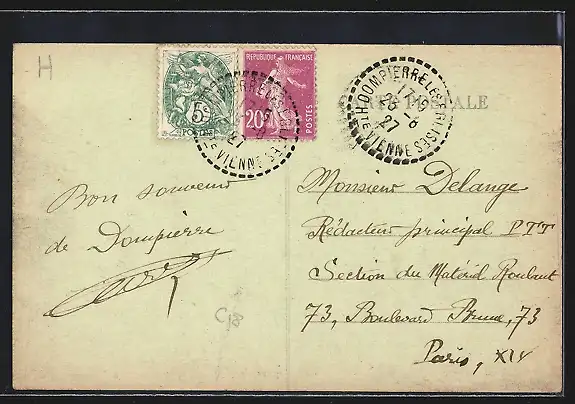 H
5c
POSTES
REPUBLIQUE FRANÇAISE
20c
POSTES
DOMPIERRE LES EGLISES
27
HTE VIENNE
DOMPIERRE LES EGLISES
17
-6
27
HTE VIENNE
CARTE POSTALE
Bon souvenir
de Dompierre
C18
Monsieur Delange
Rédacteur principal PTT
Section du Matériel Roulant
73, Boulevard Brune, 73
Paris, XIV